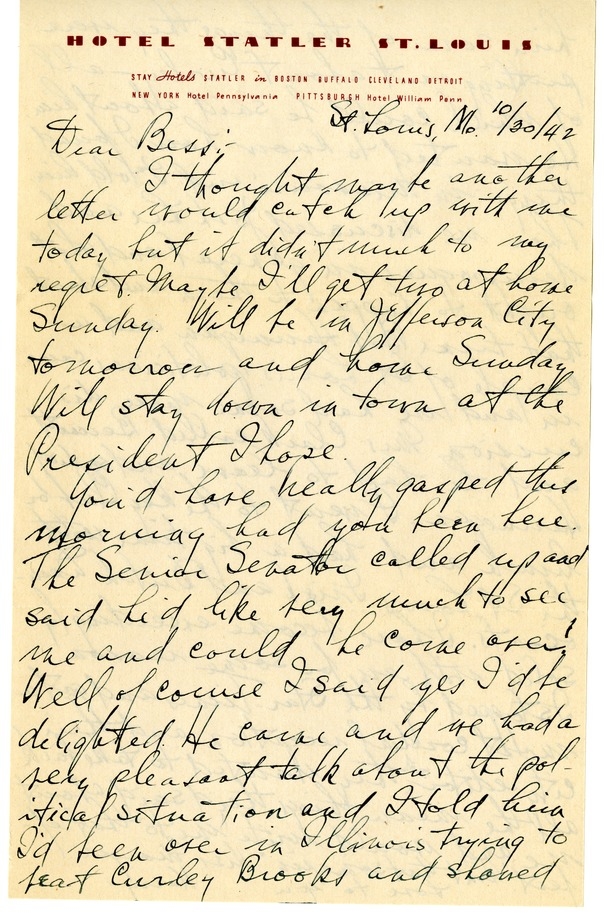 HOTEL STATLER ST. LOUIS
STAY Hotels STATLER in BOSTON BUFFALO CLEVELAND DETROIT
NEW YORK Hotel Pennsylvania PITTSBURGH Hotel William Penn
St. Louis, Mo. 10/30/42
Dear Bess:-
I thought maybe another
letter would catch up with me
today but it didn't much to my
regret. Maybe I'll get two at home
Sunday. Will be in Jefferson City
tomorrow and home Sunday
Will stay down in town at the
President I hope.
You'd have really gasped this
morning had you been here.
The Senior Senator called up and
said he'd like very much to see
me and could he come over!
Well of course I said yes I'd be
delighted. He came and we had a
very pleasant talk about the pol-
itical situation and I told him
I'd been over in Illinois trying to
beat Curley Brooks and showed